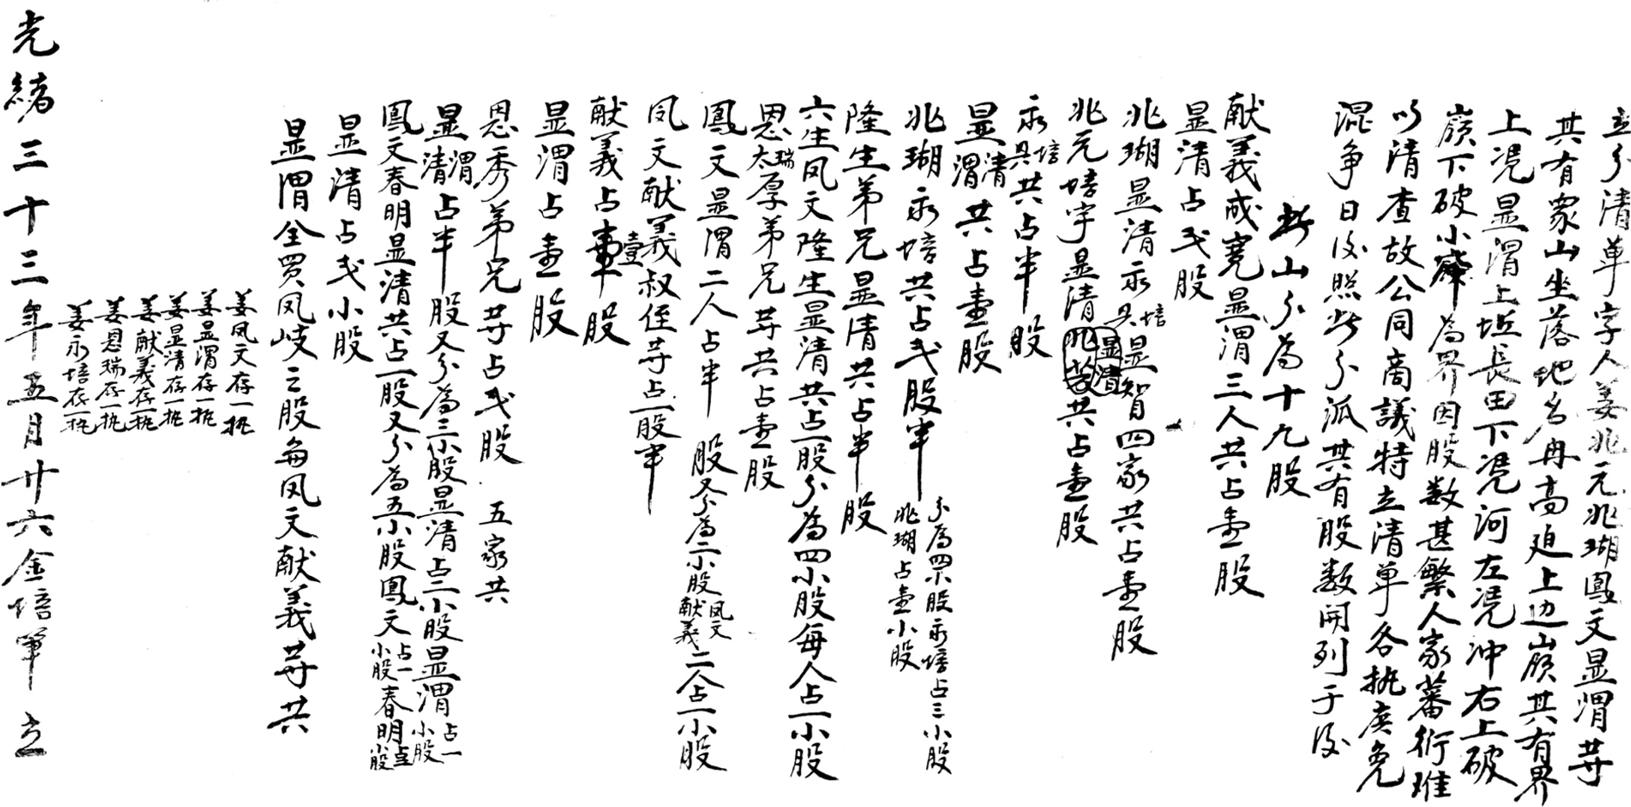 立分清单字人姜兆元兆瑚鳳文显渭䒭
共有衆山坐落地名冉高迫上边山嶺其有界
上凴显渭上坵長田下凴河左凴冲右上破
嶺下破小為界因股数甚繁人家蕃衍难
以清查故公同商議特立清单各执庶免
混争日后照此分派共有股数開列于后
此山分為十九股
献義成寛显渭三人共占壹股
显清占弍股
兆瑚显清永培兴显智四家共占壹股
兆元培宇显清显清共占壹股
永培兴共占半股
显清渭共占壹股
兆瑚永培共占弍股半 分為四小股永培占三小股兆瑚占壹小股
隆生弟兄显清共占半股
六生凤文隆生显清共占一股分為四小股每人占一小股
恩瑞太厚弟兄䒭共占壹股
鳳文显渭二人占半股又分為二小股凤文献義二人占一小股
凤文献義叔侄䒭占一股半
献義占壹股
显渭占壹股
恩秀弟兄䒭占弍股 五家共
显渭清占半股又分為三小股显清占二小股显渭占一小股
鳳文春明显清共占一股又分為五小股鳳文占一小股春明占小股
显清占弍小股
显渭全買凤岐之股與凤文献義䒭共
姜凤文存一执
姜显渭存一执
姜显清存一执
姜献義存一执
姜恩瑞存一执
姜永培存一执
光緒三十三年五月廿六金培筆 立